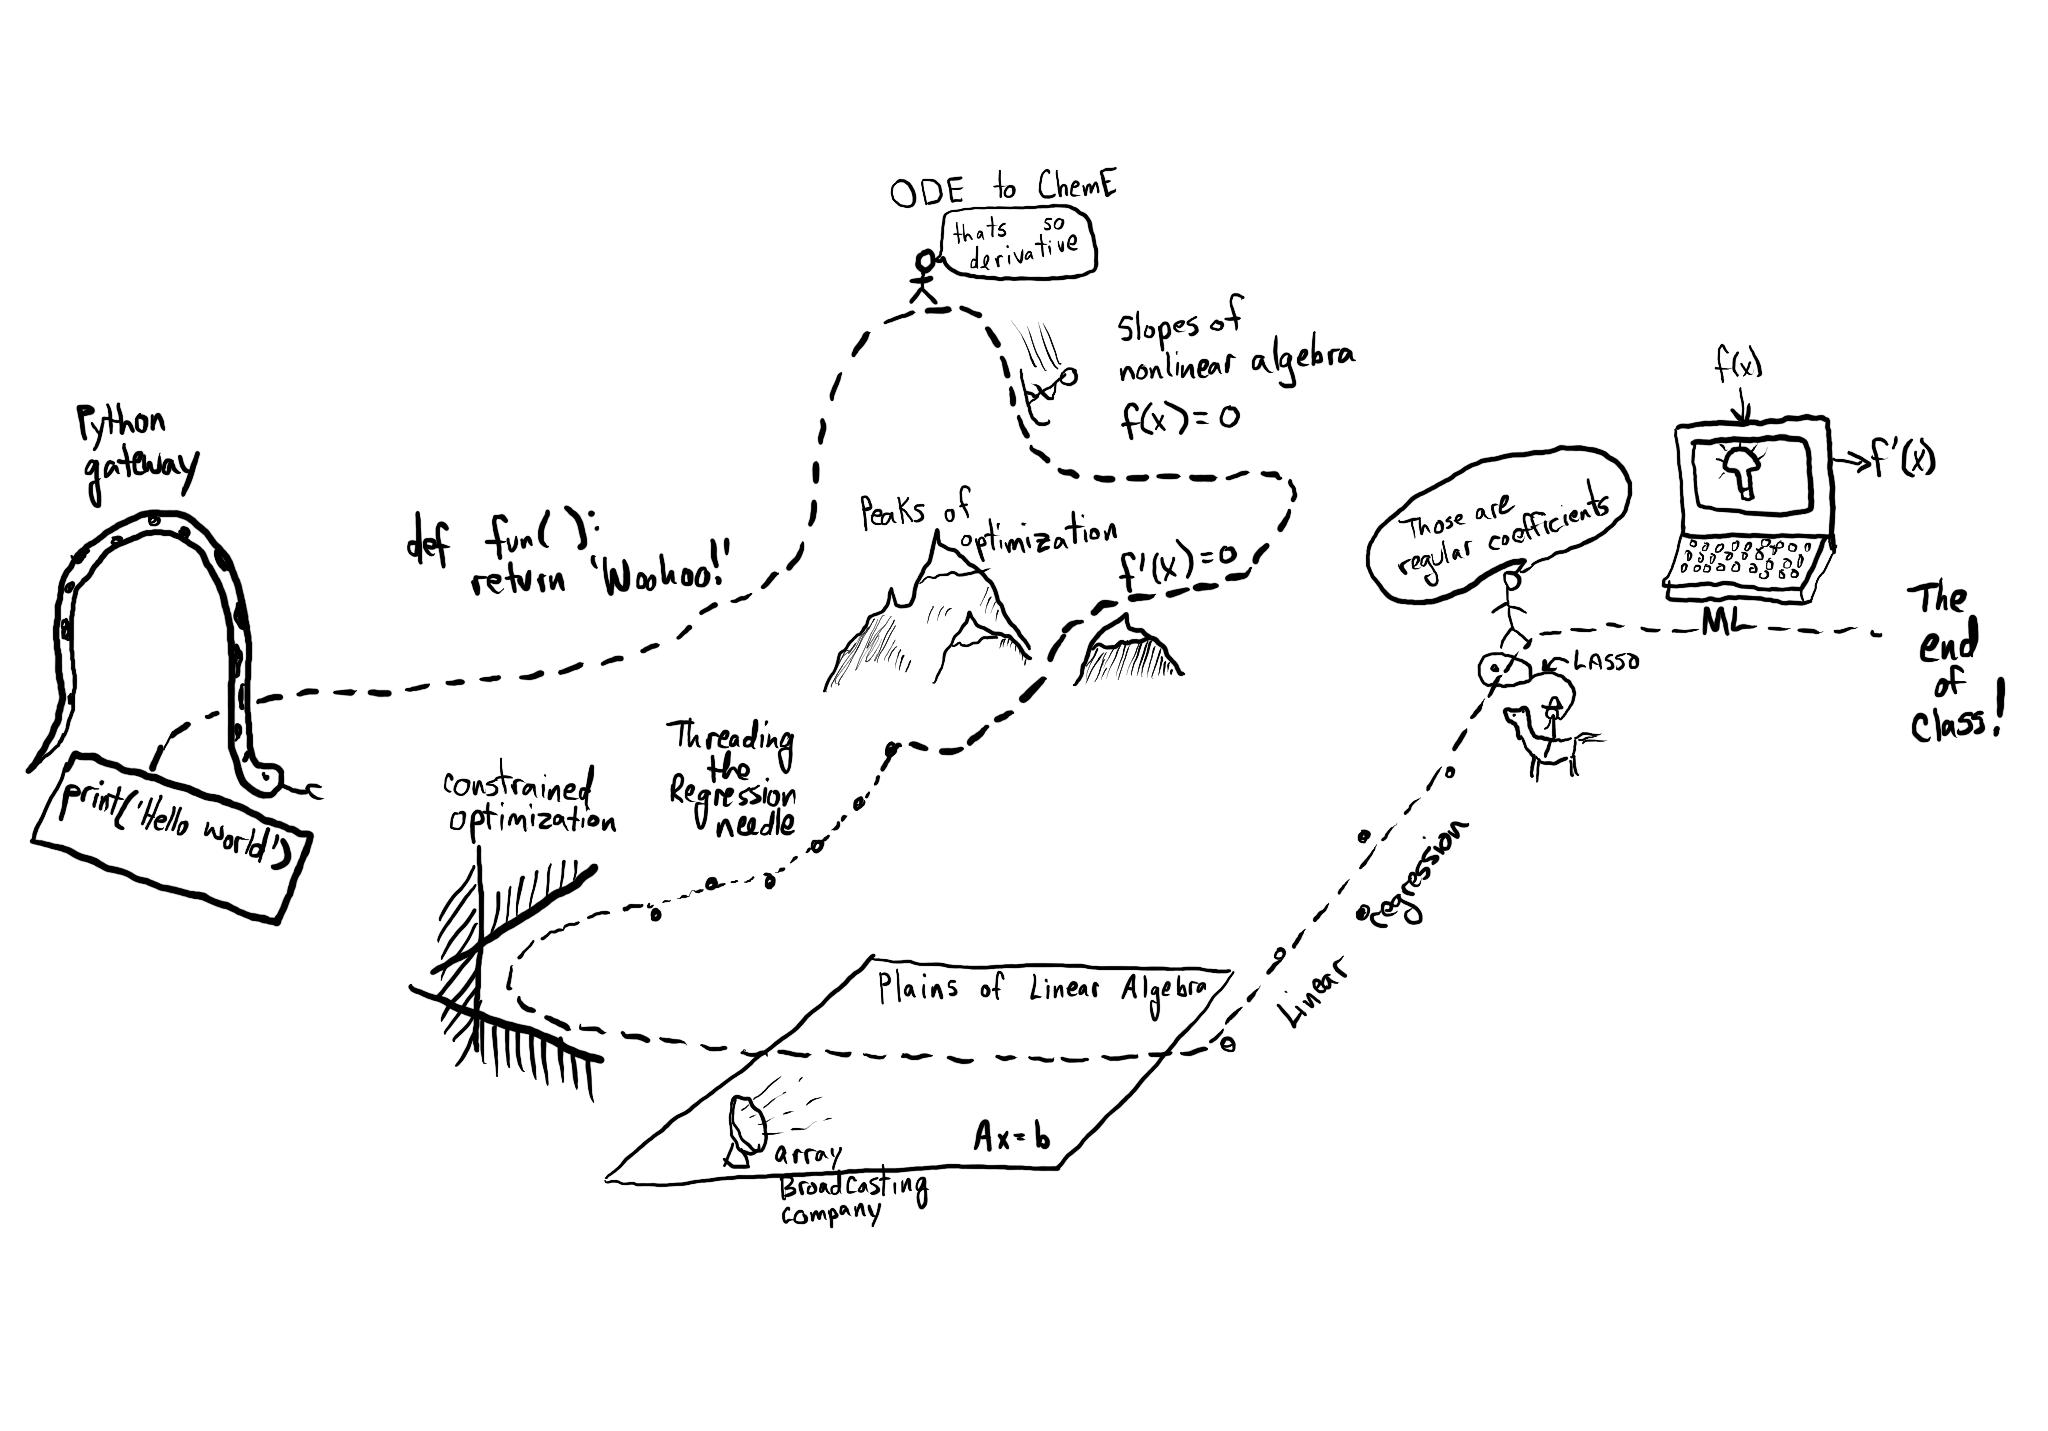 ODE to ChemE
thats so
derivative
Slopes of
nonlinear algebra
f(x)=0
Python
gateway
def fun():
return 'Woohoo!'
print('Hello world')
Peaks of
optimization
f'(x)=0
Threading
the
Regression
needle
constrained
optimization
Plains of Linear Algebra
Ax=b
array
Broadcasting
company
Linear regression
Those are
regular coefficients
LASSO
f(x)
f'(x)
ML
The
end
of
class!